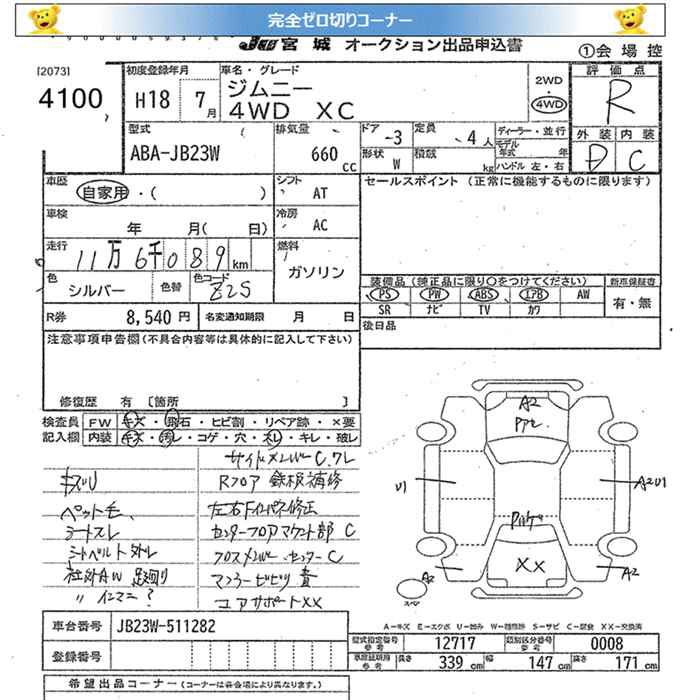 完全ゼロ切りコーナー
JU宮城 オークション出品申込書
①会場控
[2073]
4100
初度登録年月
H18 7月
車名・グレード
ジムニー
4WD XC
2WD
・
4WD
評価点
R
型式
ABA-JB23W
排気量
660
CC
ドア -3
定員 4人
形状 W
積載 kg
ディーラー・並行
モデル年式 年
ハンドル 左・右
外装 内装
D C
車歴
自家用・( )
シフト
AT
セールスポイント (正常に機能するものに限ります)
車検
年 月( 日)
冷房
AC
走行
11万6千089km
燃料
ガソリン
色
シルバー
色替
色コード
Z2S
装備品(純正品に限り○をつけてください)
新車保証書
PS PW ABS エアB AW
SR ナビ TV カワ
有・無
R券 8,540円
名変通知期限 月 日
後日品
注意事項申告欄(不具合内容等は具体的に記入して下さい)
修復歴 有 [箇所 ]
検査員 FW キズ・飛石・ヒビ割・リペア跡・×要
記入欄 内装 キズ・汚レ・コゲ・穴・スレ・キレ・破レ
サイドメンバー C.ワレ
キズU
Rフロア 鉄板補修
ペット毛、
左右Fインパネ修正
シートスレ
センターフロアマウント部 C
シートベルト外レ
クロスメンバー.センターC
社外AW 足廻り
〃 インマニ?
コアサポートXX
A2
U1
A2U1
XX
A2
A2
スペア
車台番号 JB23W-511282
登録番号
A-キズ E-エクボ U-凹み W-補修跡 S-サビ C-腐食 XX-交換済
型式指定番号
参考
12717
類別区分番号
参考
0008
車庫証明用
参考
長さ 339cm 幅 147cm 高さ 171cm
希望出品コーナー(コーナーは各会場により異なります。)